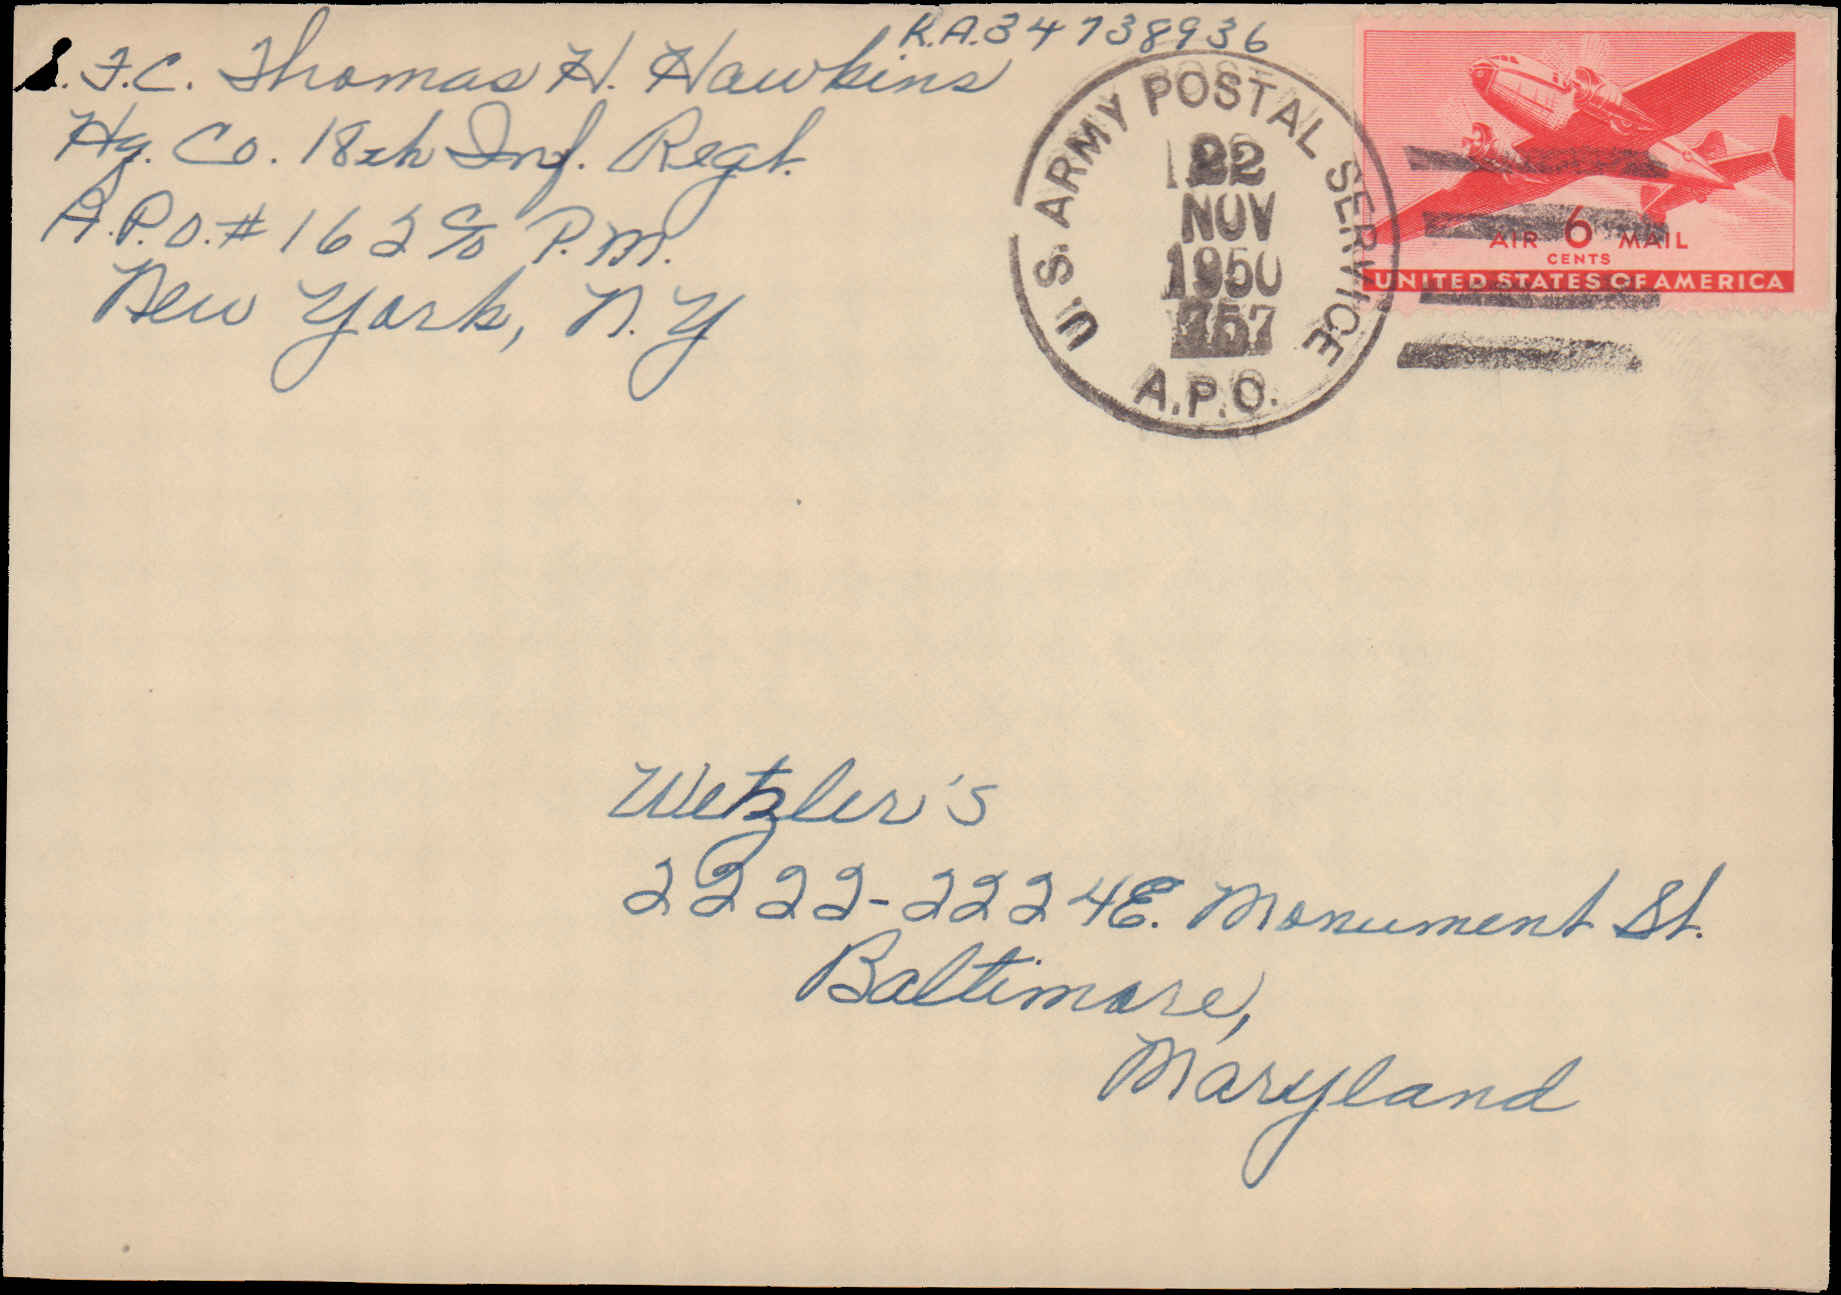 R.A. 34738936
.F.C. Thomas H. Hawkins
Hq. Co. 18th Inf. Regt.
A.P.O. # 162 c/o P.M.
New York, N.Y
U.S. ARMY POSTAL SERVICE
22
NOV
1950
757
A.P.O.
AIR 6 MAIL
CENTS
UNITED STATES OF AMERICA
Wetzler's
2222-2224 E. Monument St.
Baltimore,
Maryland